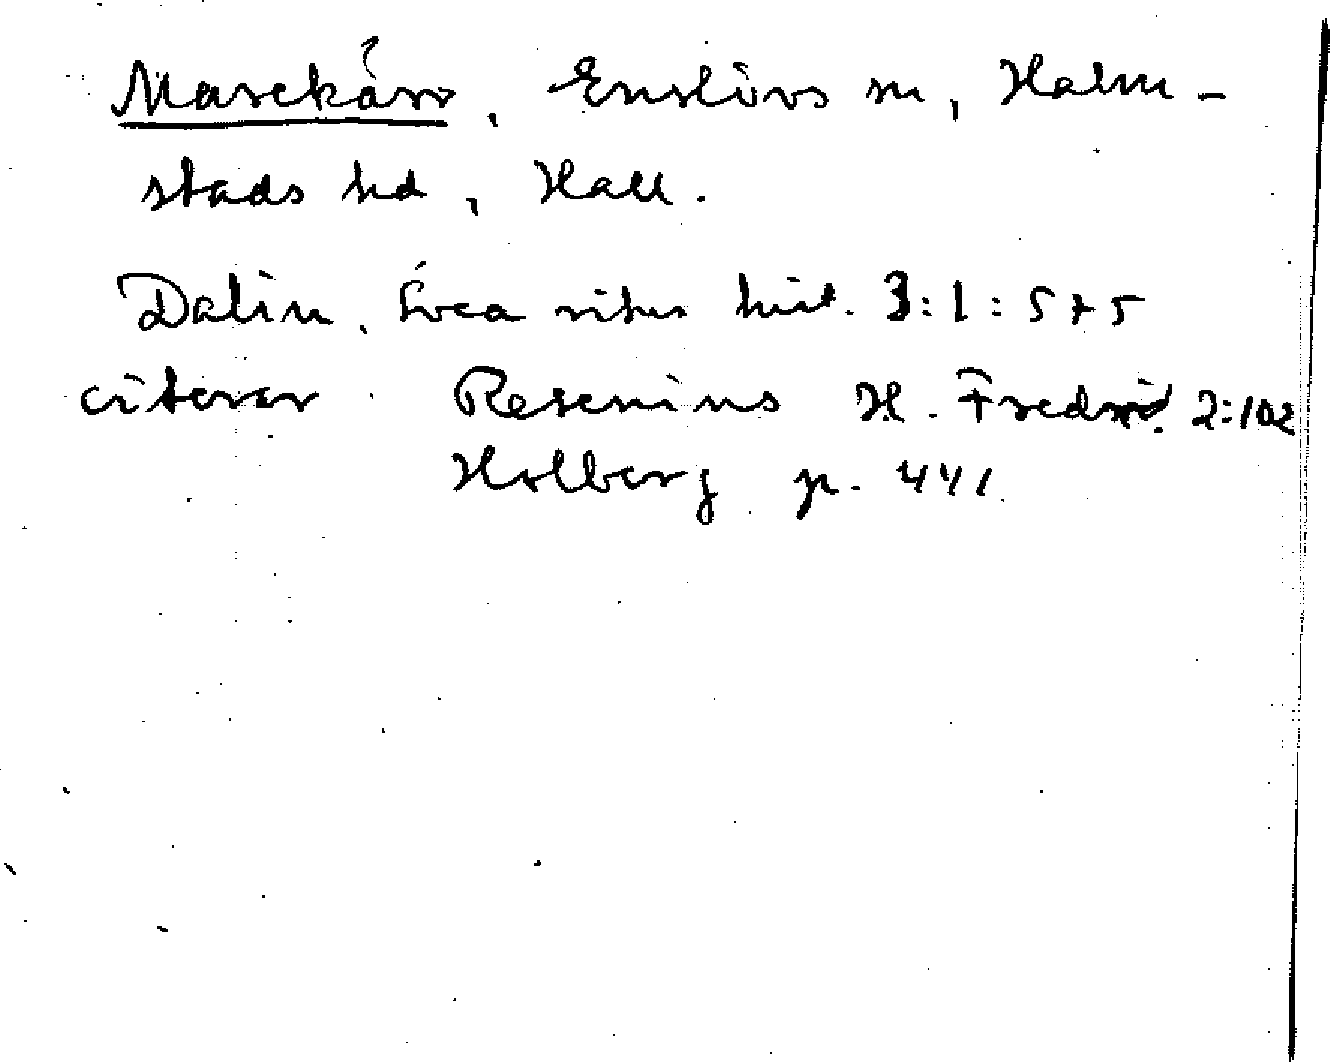 Marekärr, Enslövs sn, Halm-
stads hd, Hall.
Dalin, Svea rikes hist. 3:1:575
citerar Resenius H. Fredric. 2:102
Holberg p. 441